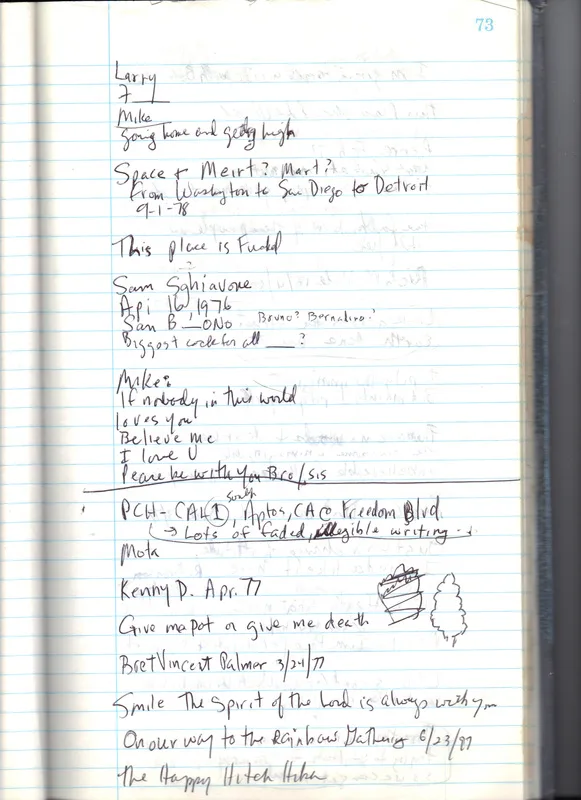 73
Larry
7___
Mike
going home and getting high
Space + Meirt? Mart?
From Washington to San Diego to Detroit
9-1-78
This place is Fuckd
?
Sam Sghiavone
Apr 16, 1976
San B__ONO Bruno? Bernadino?
Biggest cock for all ___?
Mike:
If nobody in this world
loves you
Believe me
I love U
Peace be with you Bro/sis
south
PCH - CAH 1, Aptos, CA @ Freedom Blvd.
→ Lots of faded, illegible writing
Mota
Kenny D. Apr. 77
Give me pot or give me death
Bret Vincent Palmar 3/24/77
Smile The Spirit of the Lord is always with you
On our way to the Rainbow Gathering 6/23/87
The Happy Hitch Hiker